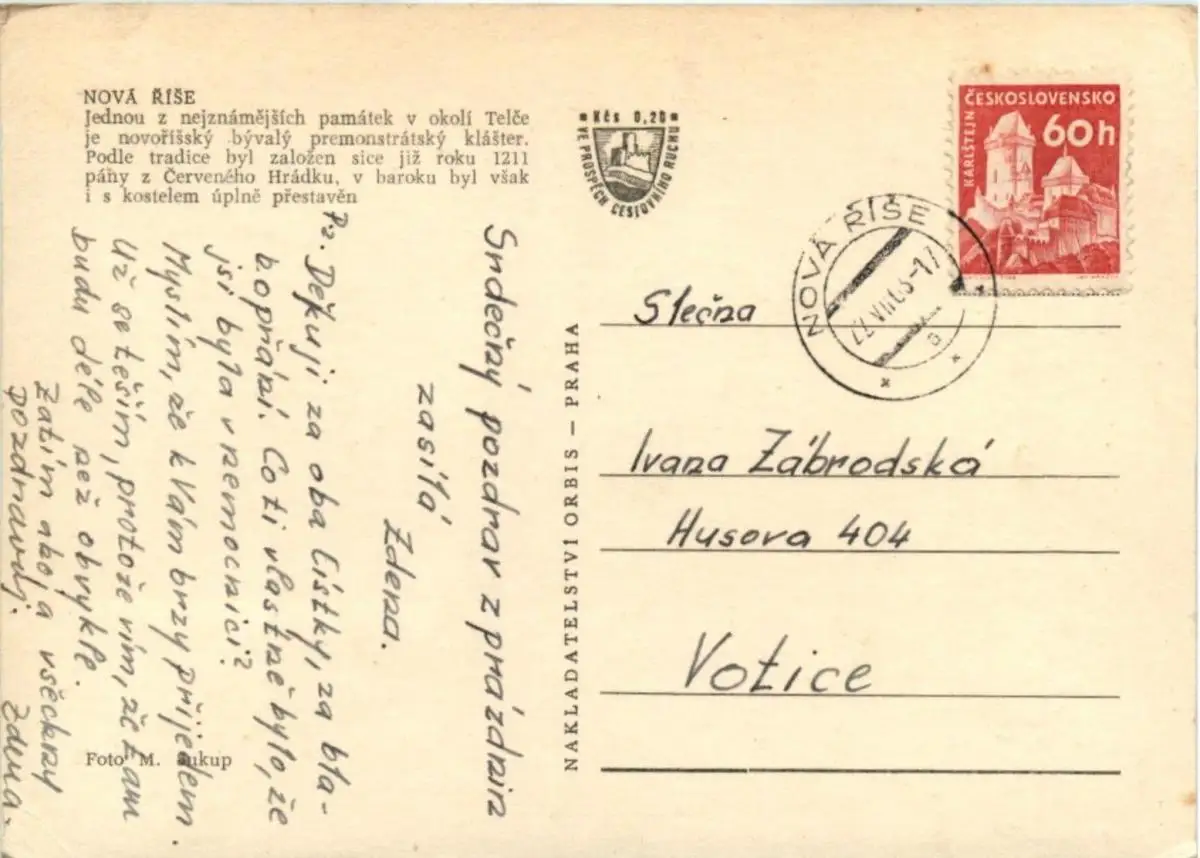 NOVÁ ŘÍŠE
Jednou z nejznámějších památek v okolí Telče
je novoříšský bývalý premonstrátský klášter.
Podle tradice byl založen sice již roku 1211
páňy z Červeného Hrádku, v baroku byl však
i s kostelem úplně přestavěn
Kčs 0,20
VE PROSPĚCH CESTOVNÍHO RUCHU
ČESKOSLOVENSKO
60h
KARLŠTEJN
NOVÁ ŘÍŠE
Srdečný pozdrav z prázdnin
zasílá
Zdena.
Děkuji za oba lístky, za bla-
hopřání. Co ti vlastně bylo, že
jsi byla v nemocnici?
Myslím, že k Vám brzy přijedem.
Už se těším, protože vím, že tam
budu déle než obvykle.
Zatím ahoj a všechny
pozdravuj.
Zdena.
NAKLADATELSTVÍ ORBIS — PRAHA
Slečna
Ivana Zábrodská
Husova 404
Votice
Foto M. Sukup